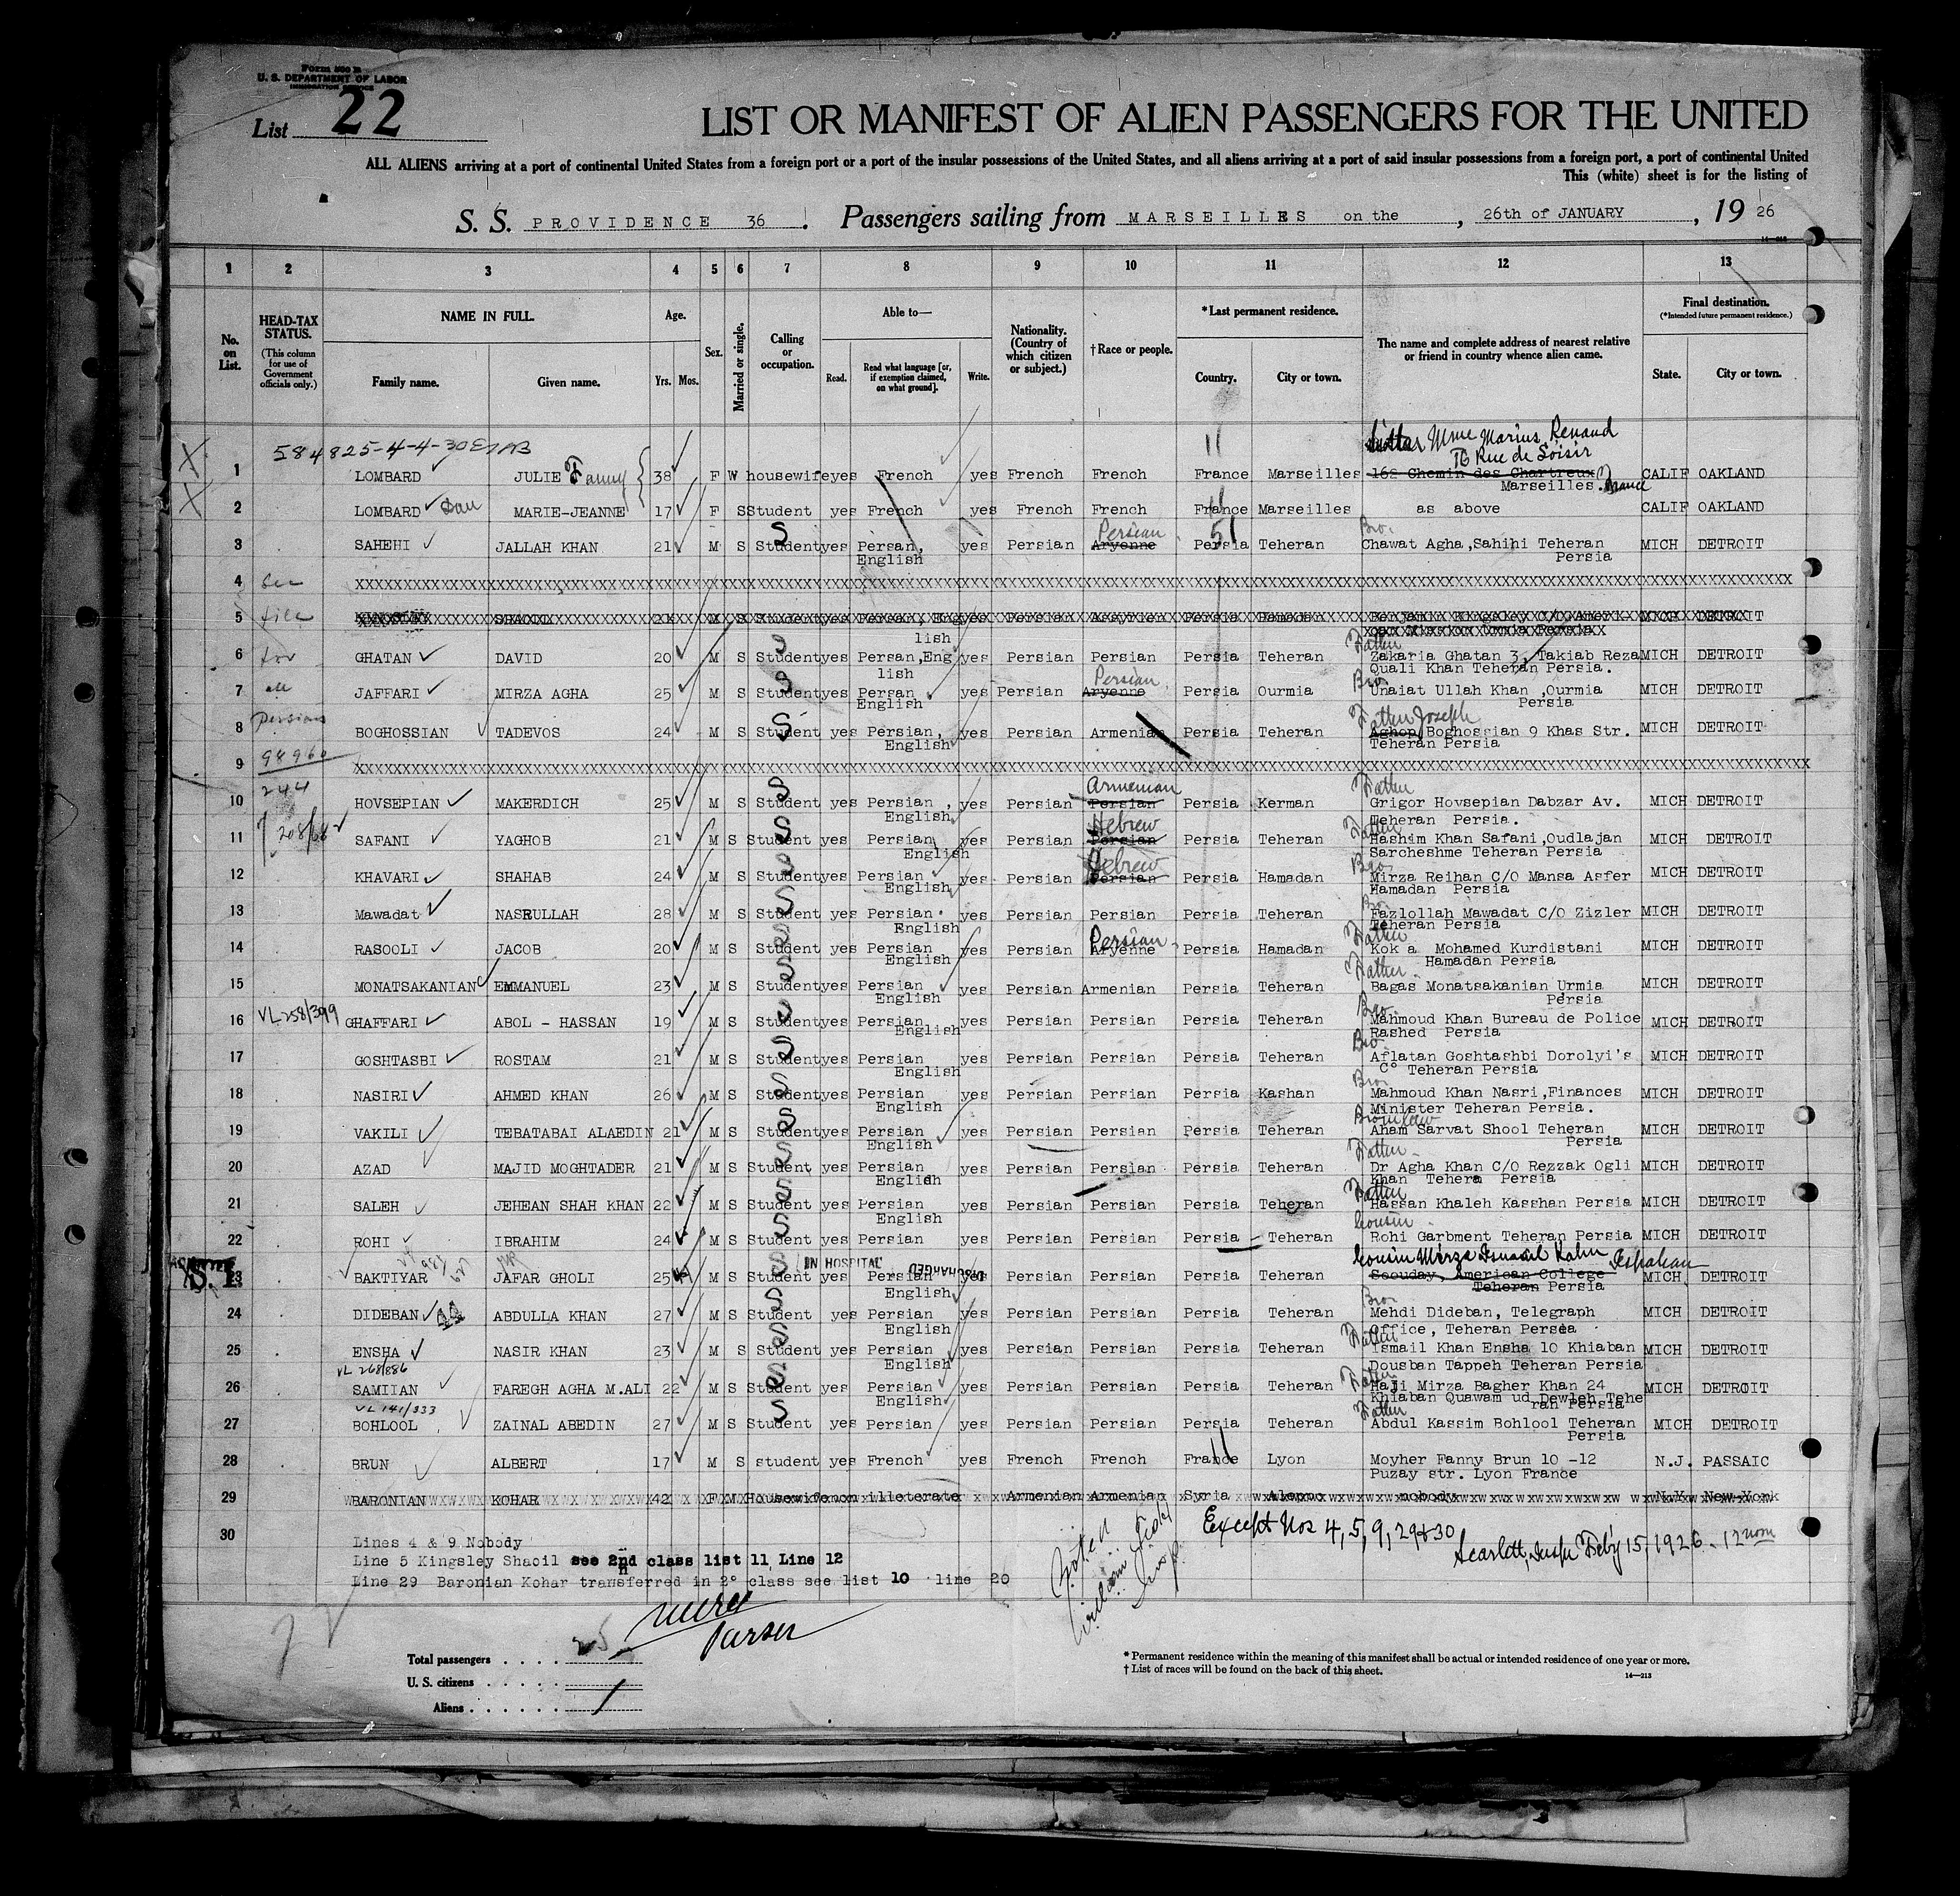 Form 500 B
U. S. DEPARTMENT OF LABOR
IMMIGRATION SERVICE
List 22
LIST OR MANIFEST OF ALIEN PASSENGERS FOR THE UNITED
ALL ALIENS arriving at a port of continental United States from a foreign port or a port of the insular possessions of the United States, and all aliens arriving at a port of said insular possessions from a foreign port, a port of continental United
This (white) sheet is for the listing of
S. S. PROVIDENCE 36 . Passengers sailing from MARSEILLES on the , 26th of JANUARY , 19 26
14—213
1 2 3 4 5 6 7 8 9 10 11 12 13
No. on List.
HEAD-TAX STATUS. (This column for use of Government officials only.)
NAME IN FULL.
Family name. Given name.
Age.
Yrs. Mos.
Sex.
Married or single.
Calling or occupation.
Able to—
Read. Read what language [or, if exemption claimed, on what ground]. Write.
Nationality. (Country of which citizen or subject.)
† Race or people.
*Last permanent residence.
Country. City or town.
The name and complete address of nearest relative or friend in country whence alien came.
Final destination.
(*Intended future permanent residence.)
State. City or town.
584825-4-4-30
11 Mme Marius Renaud
16 Rue de Loisir
1 LOMBARD JULIE Fanny 38 F W housewife yes French yes French French France Marseilles 162 Chemin des Chartreux CALIF OAKLAND
Marseilles. France
2 LOMBARD MARIE-JEANNE 17 F S Student yes French yes French French France Marseilles as above CALIF OAKLAND
S Persian 51 Bro.
3 SAHEHI JALLAH KHAN 21 M S Student yes Persan, yes Persian Aryenne Persia Teheran Chawat Agha,Sahihi Teheran MICH DETROIT
English Persia
4 See XXXXXXXXXXXXXXXXXXXXXXXXXXXXXXXX
5 file SHACIL 21 M S Student yes Persan, Eng yes Persian Assyrien Persia Hamadan Benjamin Kingsley C/O Amerk MICH DETROIT
lish
S Father
6 for GHATAN DAVID 20 M S Student yes Persan,Eng yes Persian Persian Persia Teheran Zakaria Ghatan 3, Takiab Reza MICH DETROIT
lish Quali Khan Teheran Persia.
S Persian Bro.
7 all JAFFARI MIRZA AGHA 25 M S Student yes Persan yes Persian Aryenne Persia Ourmia Unaiat Ullah Khan ,Ourmia MICH DETROIT
English Persia
Persians S Father Joseph
8 BOGHOSSIAN TADEVOS 24 M S Student yes Persian, yes Persian Armenian Persia Teheran Aghop Boghossian 9 Khas Str. MICH DETROIT
English Teheran Persia
98960
9 XXXXXXXXXXXXXXXXXXXXXXXXXXXXXXXX
244 S Armenian Father
10 HOVSEPIAN MAKERDICH 25 M S Student yes Persian , yes Persian Persian Persia Kerman Grigor Hovsepian Dabzar Av. MICH DETROIT
English Teheran Persia.
S Hebrew Father
11 SAFANI YAGHOB 21 M S Student yes Persian yes Persian Persian Persia Teheran Hashim Khan Safani,Oudlajan MICH DETROIT
English Sarcheshme Teheran Persia
S Hebrew Bro
12 KHAVARI SHAHAB 24 M S Student yes Persian yes Persian Persian Persia Hamadan Mirza Reihan C/O Mansa Asfer MICH DETROIT
English Hamadan Persia
S Bro.
13 Mawadat NASRULLAH 28 M S Student yes Persian yes Persian Persian Persia Teheran Fazlollah Mawadat C/O Zizler MICH DETROIT
English Teheran Persia
S Persian Father
14 RASOOLI JACOB 20 M S Student yes Persian yes Persian Aryenne Persia Hamadan Kok a Mohamed Kurdistani MICH DETROIT
English Hamadan Persia
S Father
15 MONATSAKANIAN EMMANUEL 23 M S Student yes Persian yes Persian Armenian Persia Teheran Bagas Monatsakanian Urmia MICH DETROIT
English Persia
VL 258/399 S Bro.
16 GHAFFARI ABOL - HASSAN 19 M S Student yes Persian yes Persian Persian Persia Teheran Mahmoud Khan Bureau de Police MICH DETROIT
English Rashed Persia
S Bro.
17 GOSHTASBI ROSTAM 21 M S Student yes Persian yes Persian Persian Persia Teheran Aflatan Goshtashbi Dorolyi's MICH DETROIT
English C° Teheran Persia
S Bro.
18 NASIRI AHMED KHAN 26 M S Student yes Persian yes Persian Persian Persia Kashan Mahmoud Khan Nasri,Finances MICH DETROIT
English Minister Teheran Persia.
S Bro in law
19 VAKILI TEBATABAI ALAEDIN 21 M S Student yes Persian yes Persian Persian Persia Teheran Aham Sarvat Shool Teheran MICH DETROIT
English Persia
S Father
20 AZAD MAJID MOGHTADER 21 M S Student yes Persian yes Persian Persian Persia Teheran Dr Agha Khan C/O Rezzak Ogli MICH DETROIT
English Khan Tehera Persia
S Father
21 SALEH JEHEAN SHAH KHAN 22 M S Student yes Persian yes Persian Persian Persia Teheran Hassan Khaleh Kasshan Persia MICH DETROIT
English
S Cousin
22 ROHI IBRAHIM 24 M S Student yes Persian yes Persian Persian Persia Teheran Rohi Garbment Teheran Persia MICH DETROIT
ADMITTED S IN HOSPITAL DISCHARGED Cousin Mirza Ismail Kahn Ispahan
S.I. 23 BAKTIYAR JAFAR GHOLI 25 M S Student yes Persian yes Persian Persian Persia Teheran Soouday, American College MICH DETROIT
English Teheran Persia
S Bro
24 DIDEBAN ABDULLA KHAN 27 M S Student yes Persian yes Persian Persian Persia Teheran Mehdi Dideban, Telegraph MICH DETROIT
English Office, Teheran Persea
S Father
25 ENSHA NASIR KHAN 23 M S Student yes Persian yes Persian Persian Persia Teheran Ismail Khan Ensha 10 Khiaban MICH DETROIT
English Dousban Tappeh Teheran Persia
VL 268/886 S Father
26 SAMIIAN FAREGH AGHA M.ALI 22 M S Student yes Persian yes Persian Persian Persia Teheran Haji Mirza Bagher Khan 24 MICH DETROIT
English Khiaban Quawam ud Dewleh Tehe
ran Persia
VL 141/333 S Father
27 BOHLOOL ZAINAL ABEDIN 27 M S Student yes Persian yes Persian Persian Persia Teheran Abdul Kassim Bohlool Teheran MICH DETROIT
Persia
11
28 BRUN ALBERT 17 M S student yes French yes French French France Lyon Moyher Fanny Brun 10 -12 N.J. PASSAIC
Puzay str. Lyon France
29 BARONIAN KOHAR 42 F M Housewife non illeterate Armenian Armenian Syria Aleppo nobody N.Y. New-York
Except Nos 4, 5, 9, 29 & 30
30 Scarlett, Insp. Feb'y 15, 1926. 12 noon
Lines 4 & 9 Nobody
Line 5 Kingsley Shacil see 2nd class list 11 Line 12
Line 29 Baronian Kohar transferred in 2° class see list 10 line 20
Purser
Total passengers . . . . 25
U. S. citizens . . . . . .
Aliens . . . . . .
* Permanent residence within the meaning of this manifest shall be actual or intended residence of one year or more.
† List of races will be found on the back of this sheet.
14—213